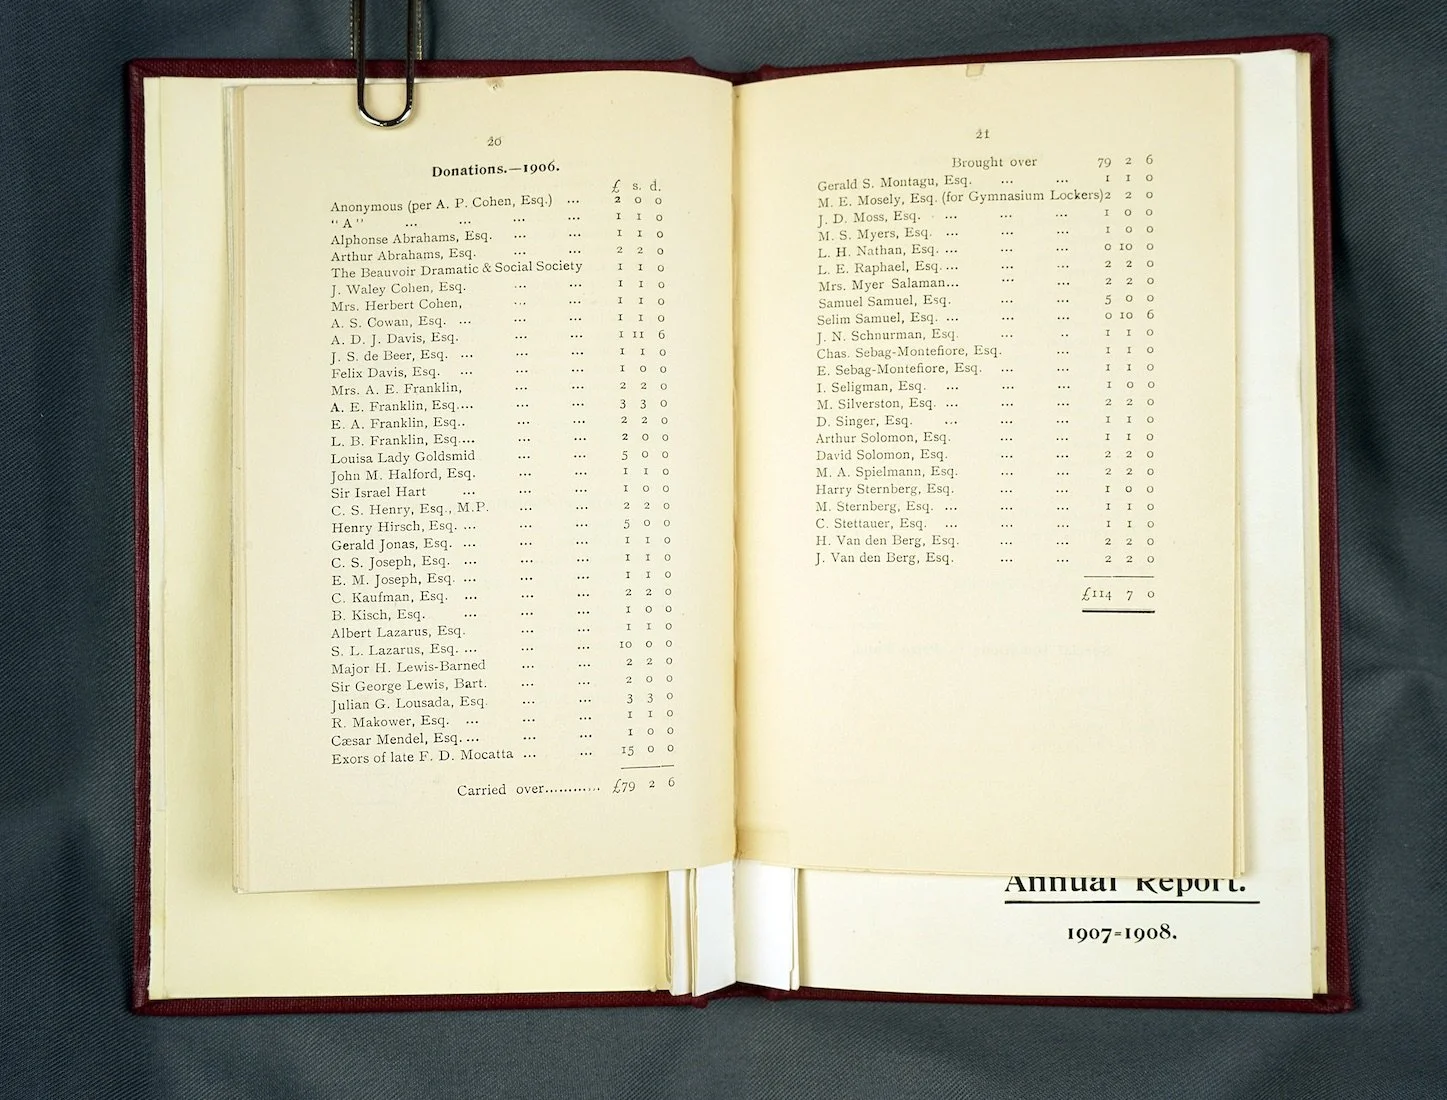 20
Donations.—1906.
£ s. d.
Anonymous (per A. P. Cohen, Esq.) ... 2 0 0
"A" ... ... ... 1 1 0
Alphonse Abrahams, Esq. ... ... 1 1 0
Arthur Abrahams, Esq. ... ... 2 2 0
The Beauvoir Dramatic & Social Society 1 1 0
J. Waley Cohen, Esq. ... ... 1 1 0
Mrs. Herbert Cohen, ... ... 1 1 0
A. S. Cowan, Esq. ... ... ... 1 1 0
A. D. J. Davis, Esq. ... ... 1 11 6
J. S. de Beer, Esq. ... ... ... 1 1 0
Felix Davis, Esq. ... ... ... 1 0 0
Mrs. A. E. Franklin, ... ... 2 2 0
A. E. Franklin, Esq.... ... ... 3 3 0
E. A. Franklin, Esq.. ... ... 2 2 0
L. B. Franklin, Esq.... ... ... 2 0 0
Louisa Lady Goldsmid ... ... 5 0 0
John M. Halford, Esq. ... ... 1 1 0
Sir Israel Hart ... ... ... 1 0 0
C. S. Henry, Esq., M.P. ... ... 2 2 0
Henry Hirsch, Esq. ... ... ... 5 0 0
Gerald Jonas, Esq. ... ... ... 1 1 0
C. S. Joseph, Esq. ... ... ... 1 1 0
E. M. Joseph, Esq. ... ... ... 1 1 0
C. Kaufman, Esq. ... ... ... 2 2 0
B. Kisch, Esq. ... ... ... 1 0 0
Albert Lazarus, Esq. ... ... 1 1 0
S. L. Lazarus, Esq. ... ... ... 10 0 0
Major H. Lewis-Barned ... ... 2 2 0
Sir George Lewis, Bart. ... ... 2 0 0
Julian G. Lousada, Esq. ... ... 3 3 0
R. Makower, Esq. ... ... ... 1 1 0
Cæsar Mendel, Esq. ... ... ... 1 0 0
Exors of late F. D. Mocatta ... ... 15 0 0
Carried over............ £79 2 6
21
Brought over 79 2 6
Gerald S. Montagu, Esq. ... ... 1 1 0
M. E. Mosely, Esq. (for Gymnasium Lockers) 2 2 0
J. D. Moss, Esq. ... ... ... 1 0 0
M. S. Myers, Esq. ... ... ... 1 0 0
L. H. Nathan, Esq. ... ... ... 0 10 0
L. E. Raphael, Esq.... ... ... 2 2 0
Mrs. Myer Salaman... ... ... 2 2 0
Samuel Samuel, Esq. ... ... 5 0 0
Selim Samuel, Esq. ... ... ... 0 10 6
J. N. Schnurman, Esq. ... ... 1 1 0
Chas. Sebag-Montefiore, Esq. ... 1 1 0
E. Sebag-Montefiore, Esq. ... ... 1 1 0
I. Seligman, Esq. ... ... ... 1 0 0
M. Silverston, Esq. ... ... ... 2 2 0
D. Singer, Esq. ... ... ... 1 1 0
Arthur Solomon, Esq. ... ... 1 1 0
David Solomon, Esq. ... ... 2 2 0
M. A. Spielmann, Esq. ... ... 2 2 0
Harry Sternberg, Esq. ... ... 1 0 0
M. Sternberg, Esq. ... ... ... 1 1 0
C. Stettauer, Esq. ... ... ... 1 1 0
H. Van den Berg, Esq. ... ... 2 2 0
J. Van den Berg, Esq. ... ... 2 2 0
£114 7 0
Annual Report.
1907-1908.